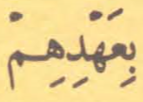 بِعَهْدِهِمْ